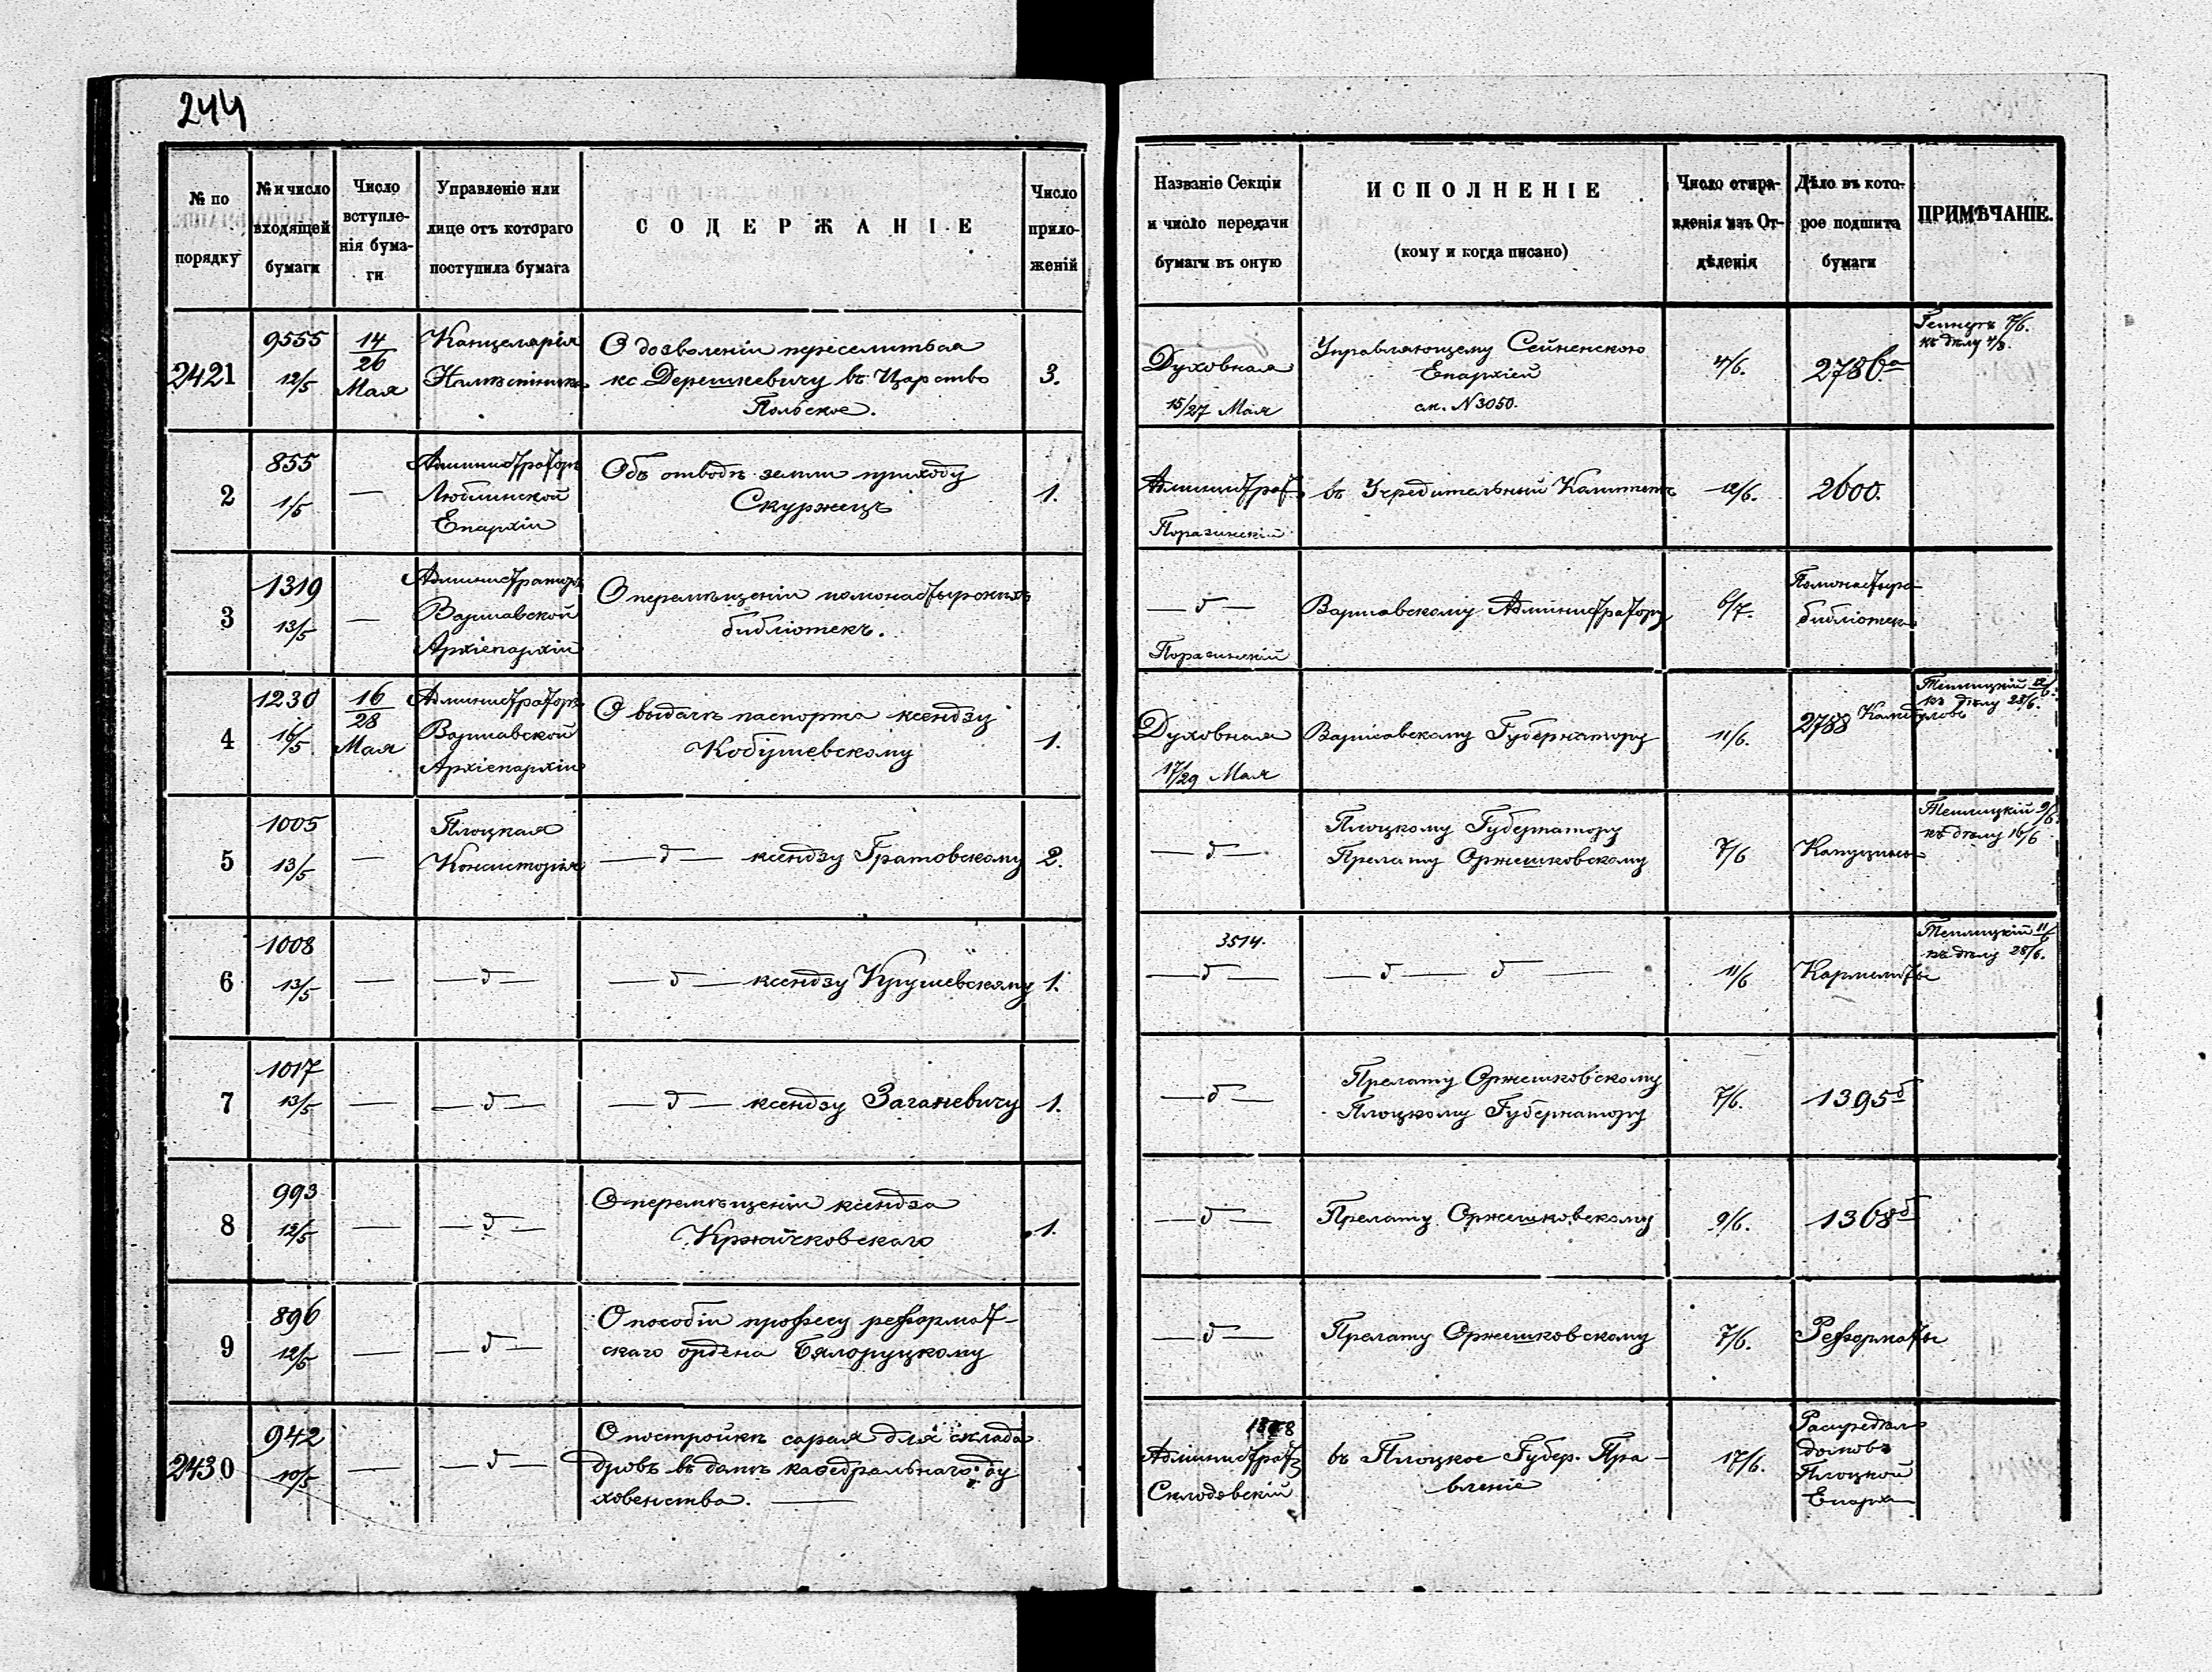 244
№ по порядку
№ и число входящей бумаги
Число вступленія бумаги
Управленіе или лице отъ котораго поступила бумага
СОДЕРЖАНІЕ
Число приложеній
Названіе Секціи и число передачи бумаги въ оную
ИСПОЛНЕНІЕ
(кому и когда писано)
Число отправленія изъ Отдѣленія
Дѣло въ которое подшита бумаги
ПРИМѢЧАНІЕ.
2421
9555
12/5
14/26
Мая
Канцелярія
Намѣстника
О дозволеніи переселиться
кс. Дерешкевичу въ Царство
Польское.
3.
Духовная
15/27 Мая
Управляющему Сейненскою
Епархіею
сл. N 3050.
4/6.
278ба
7/6.
къ дѣлу
2
855
1/5
—
Администраторъ
Люблинской
Епархіи
Объ отводѣ земли приходу
Скуржецъ
1.
Администрат
Поразинскій
въ Учредительный Комитетъ
12/6.
2600.
3
1319
13/5
—
Администраторъ
Варшавской
Архіепархіи
О перемѣщеніи помонастырскихъ
библіотекъ.
— д —
Поразинскій
Варшавскому Администратору
6/7.
Помонастыр
библіотек
4
1230
16/5
16/28
Мая
Администраторъ
Варшавской
Архіепархіи
О выдачѣ паспорта ксендзу
Кобушевскому
1.
Духовная
17/29 Мая
Варшавскому Губернатору
11/6.
2788
Теплицкій 12/6.
къ дѣлу 28/6.
5
1005
13/5
—
Плоцкая
Консисторія
— д — ксендзу Гратовскому
2.
— д —
Плоцкому Губернатору
Прелату Оржешковскому
7/6
Капуцины
Теплицкій 9/6
къ дѣлу 16/6
6
1008
13/5
—
— д —
— д — ксендзу Крушевскому
1.
3514.
— д —
— д — д —
11/6
Кармелиты
Теплицкій 11/6
къ дѣлу 28/6.
7
1017
13/5
—
— д —
— д — ксендзу Заганевичу
1.
— д —
Прелату Оржешковскому
Плоцкому Губернатору
7/6.
1395б
8
993
12/5
—
— д —
О перемѣщеніи ксендза
Кржачковскаго
1.
— д —
Прелату Оржешковскому
9/6.
1368б
9
896
12/5
—
— д —
О пособіи професу реформат-
скаго ордена Бялоруцкому
— д —
Прелату Оржешковскому
7/6.
Реформаты
2430
942
10/5
—
— д —
О постройкѣ сарая для склада
дровъ въ домѣ каѳедральнаго ду
ховенства. —
Администрат
Склодовскій
въ Плоцкое Губер. Пра-
вленіе
17/6.
Распредѣл
домовъ
Плоцкой
Епарх